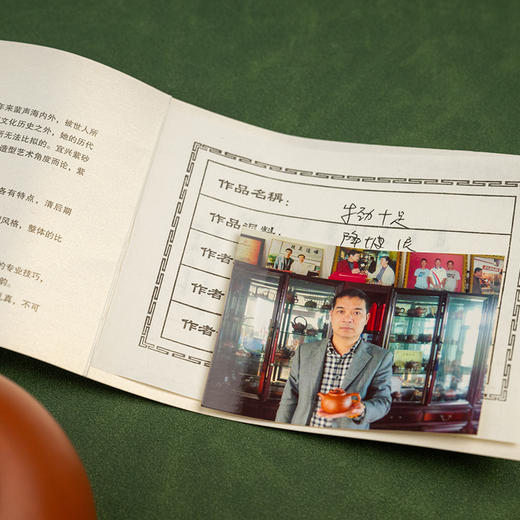 年来蜚声海内外，被世人所
文化历史之外，她的历代
所无法比拟的。宜兴紫砂
造型艺术角度而论，紫
各有特点，清后期
风格，整体的比
的专业技巧，
韵。
真，不可
作品名稱：牛劲十足
作品泥料：降坡泥
作者
作者
作者